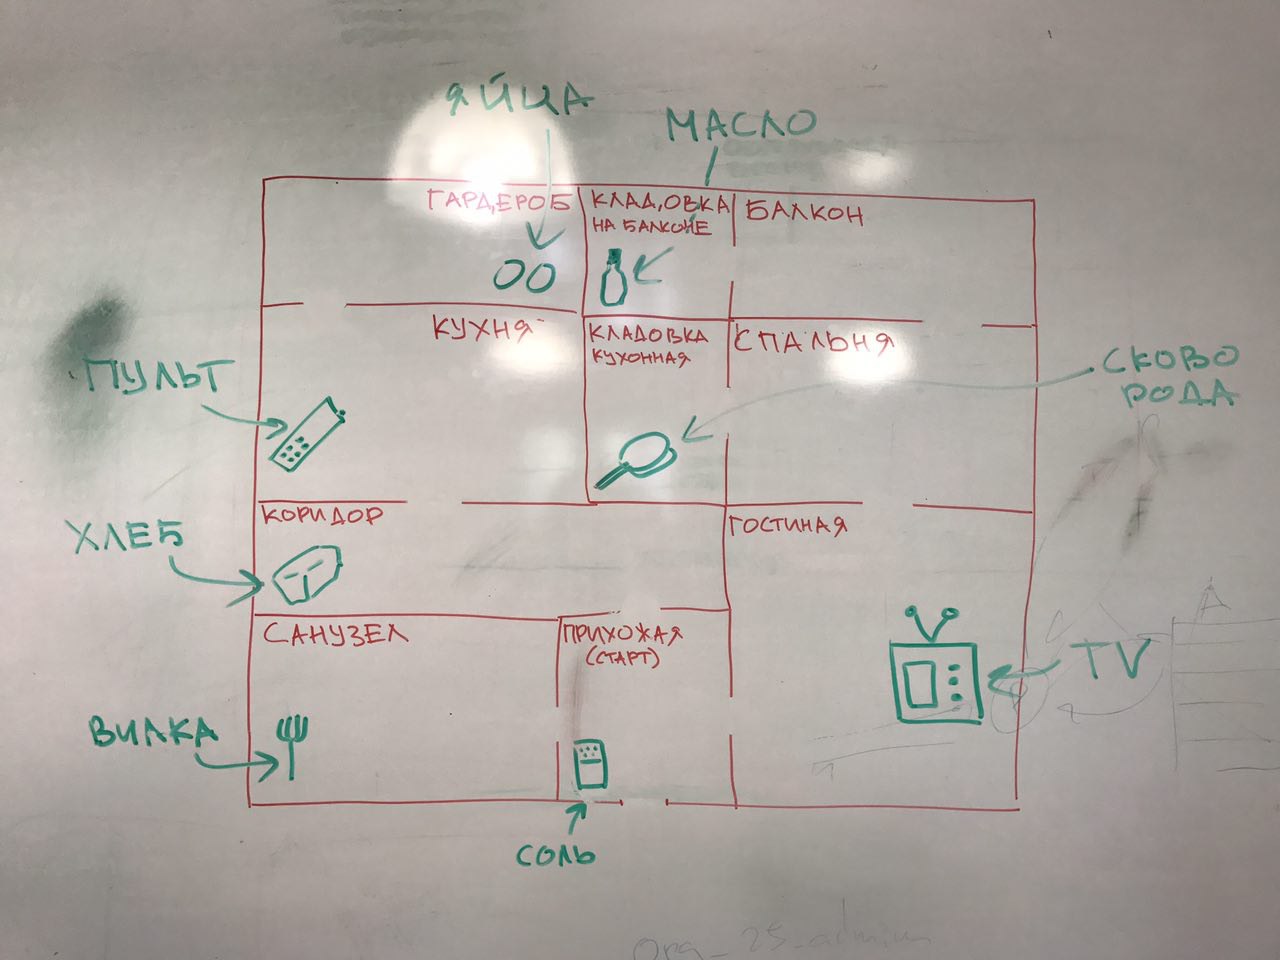 ЯЙЦА
МАСЛО
ГАРДЕРОБ
КЛАДОВКА
НА БАЛКОНЕ
БАЛКОН
КУХНЯ
КЛАДОВКА
КУХОННАЯ
СПАЛЬНЯ
СКОВО
РОДА
ПУЛЬТ
КОРИДОР
ГОСТИНАЯ
ХЛЕБ
САНУЗЕЛ
ПРИХОЖАЯ
(СТАРТ)
TV
ВИЛКА
СОЛЬ
org_25_admin